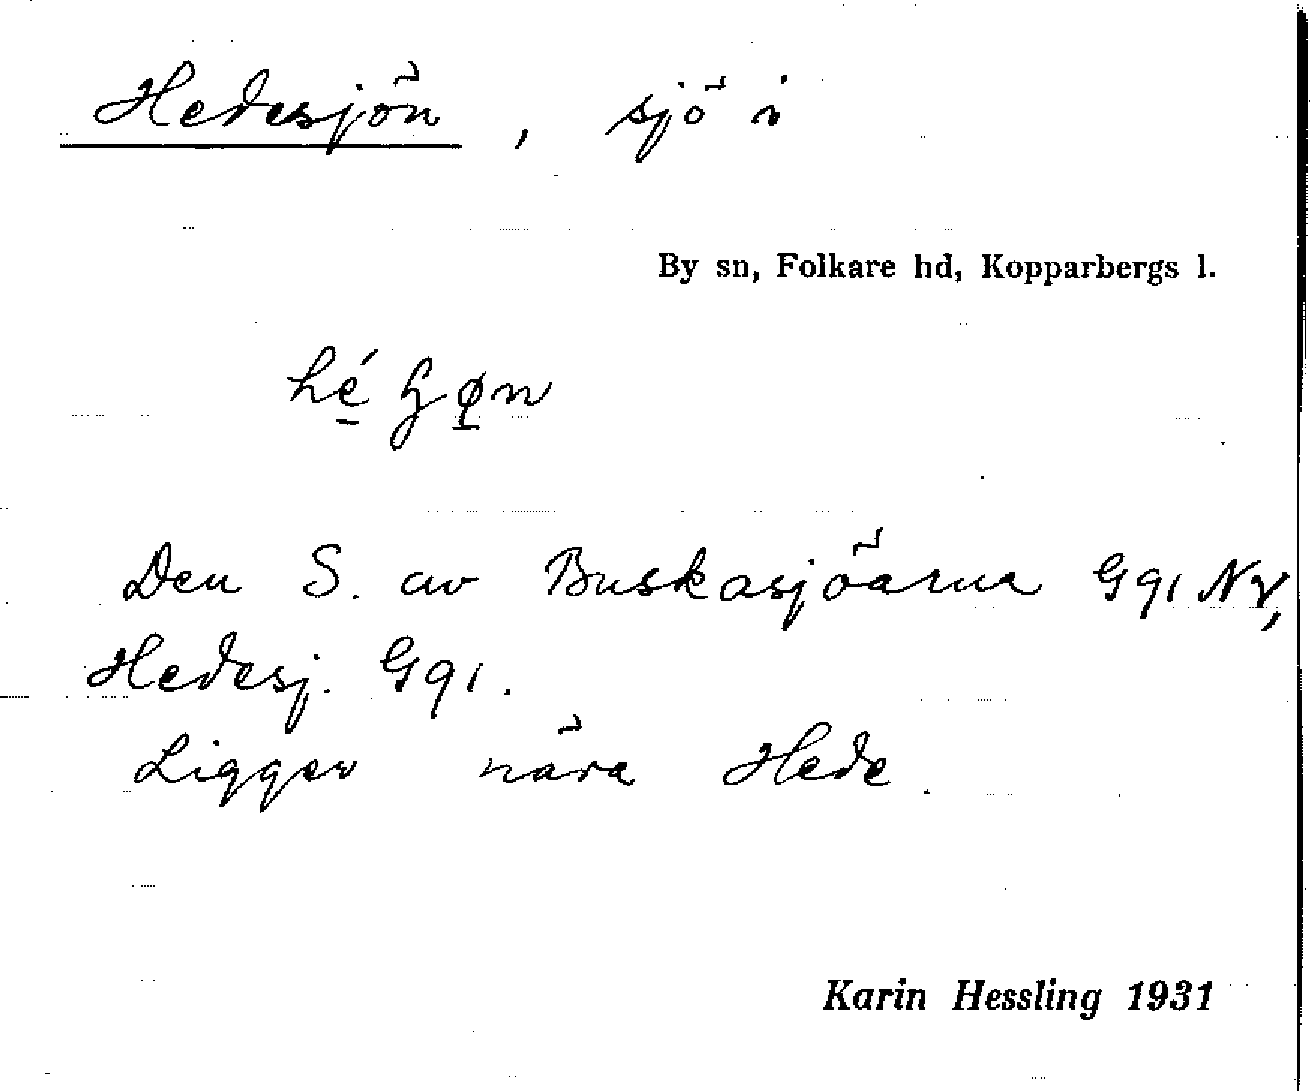 Hedesjön, sjö i
By sn, Folkare hd, Kopparbergs l.
Den S. av Buskasjöarna G91 NV,
Hedesj. G91.
Ligger nära Hede.
Karin Hessling 1931